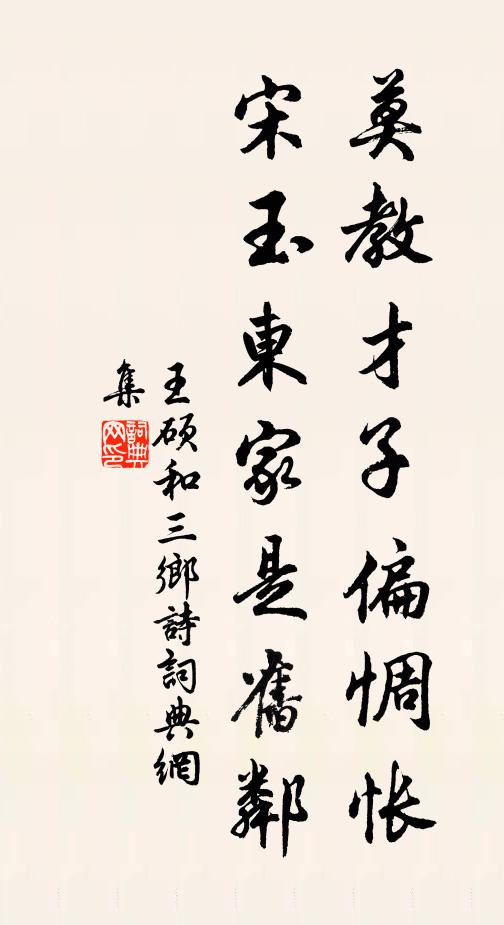 莫教才子偏惆怅
宋玉東家是舊鄰
王碩和三鄉詩詞典網
集
詞典网印